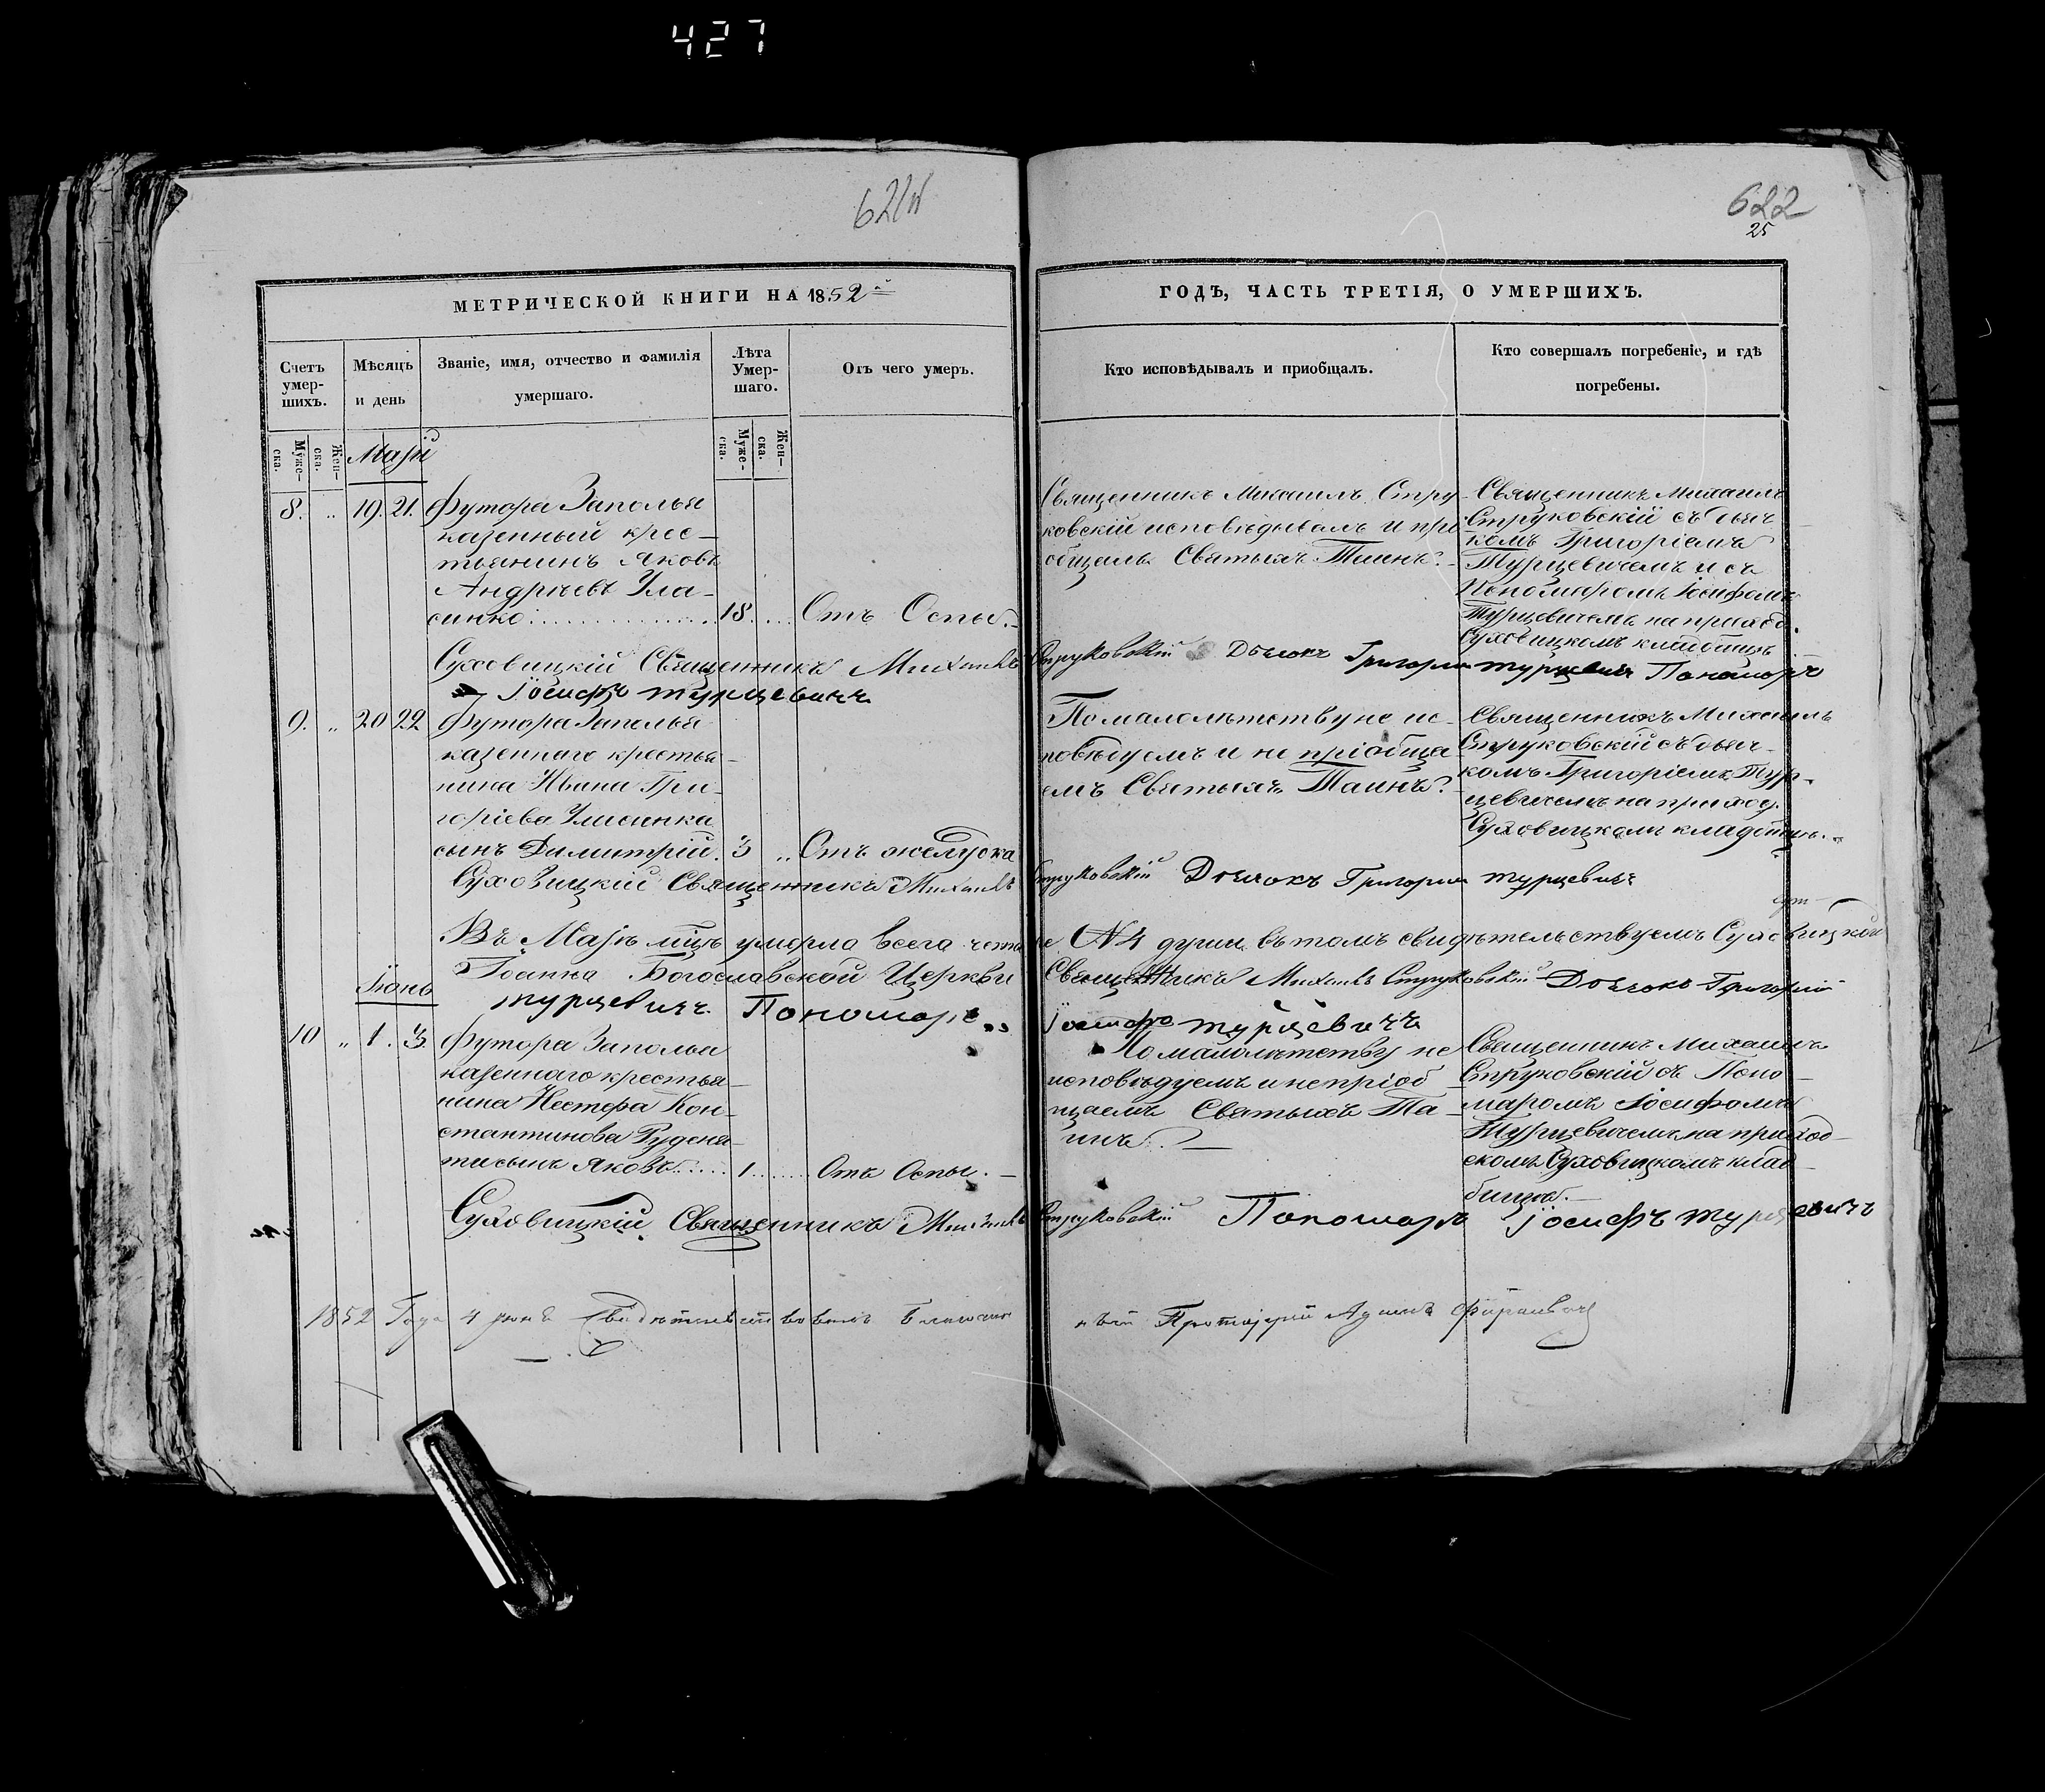 427
622
25
МЕТРИЧЕСКОЙ КНИГИ НА 1852й
ГОДЪ, ЧАСТЬ ТРЕТІЯ, О УМЕРШИХЪ.
Счетъ умер-
шихъ.
Мѣсяцъ
и день
Званіе, имя, отчество и фамилія
умершаго.
Лѣта
Умер-
шаго.
Отъ чего умеръ.
Кто исповѣдывалъ и пріобщалъ.
Кто совершалъ погребеніе, и гдѣ
погребены.
Муже-
ска.
Жен-
ска.
Муже-
ска.
Жен-
ска.
Маій
8. .. 19. 21.
Футора Заполья
казенный крес-
тьянинъ Яковъ
Андреевъ Ула-
синко 18. Отъ Оспы.
Священникъ Михаилъ Стру-
ковскій исповѣдывалъ и прі
общалъ Святыхъ Таинъ.
Священникъ Михаилъ
Струковскій съ дьяч
комъ Григоріемъ
Турцевичемъ и съ
Пономаромъ Іосифомъ
Турцевичемъ на приход.
Суховицкомъ кладбищѣ
Суховицкій Священникъ Михаилъ Струковскій Дьячокъ Григорій Турцевичъ Пономарь
Іосифъ Турцевичъ
9. .. 20 22
Футора Заполья
казеннаго крестья-
нина Ивана Гри-
горіева Уласинка
сынъ Димитрій. 3 .. Отъ желудка
По малолѣтству не ис-
повѣдуемъ и не пріобща
емъ Святыхъ Таинъ.
Священникъ Михаилъ
Струковскій съ дьяч-
комъ Григоріемъ Тур-
цевичемъ на приход.
Суховицкомъ кладбищѣ.
Суховицкій Священникъ Михаилъ Струковскій Дьячокъ Григорій Турцевичъ
Въ Маіѣ мцѣ умерло всего четыре №4 души въ томъ свидѣтельствуемъ Суховицкой
Іоанна Богославской Церкви Священникъ Михаилъ Струковскій Дьячокъ Григорій
Турцевичъ Пономарь Іосифъ Турцевичъ
Іюнь
10 .. 1. 3.
Футора Заполья
казеннаго крестья-
нина Нестера Кон-
стантинова Руденя-
ти сынъ Яковъ 1 Отъ Оспы.
По малолѣтству не
исповѣдуемъ и не пріоб
щаемъ Святыхъ Та-
инъ.
Священникъ Михаилъ
Струковскій съ Поно-
маромъ Іосифомъ
Турцевичемъ на приход-
скомъ Суховицкомъ клад-
бищѣ.
Суховицкій Священникъ Михаилъ Струковскій Пономарь Іосифъ Турцевичъ
1852 Года 4 Іюня Свидѣтельствовалъ Протоіерей